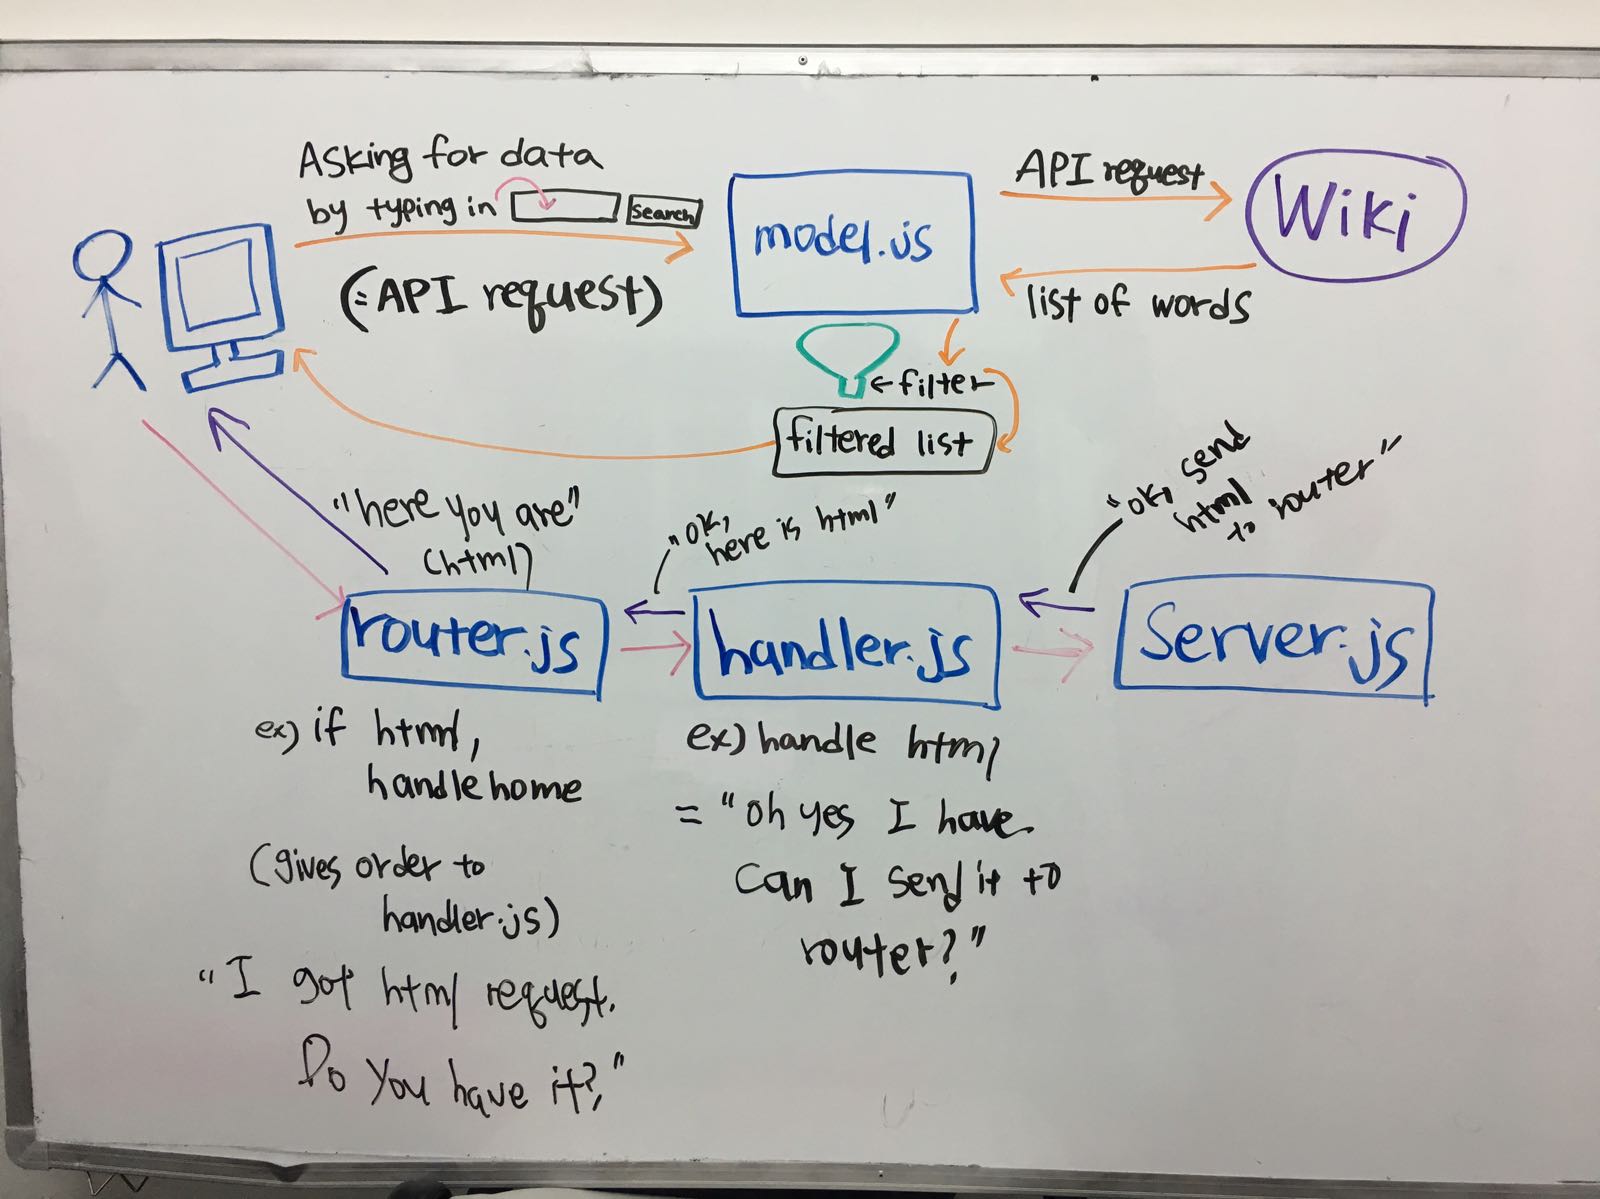 Asking for data
by typing in
Search
(= API request)
model.js
API request
Wiki
list of words
← filter
filtered list
"here you are"
(html)
"OK,
here is html"
"ok, send
html
to router"
router.js
handler.js
Server.js
ex) if html,
handlehome
(gives order to
handler.js)
"I got html request.
Do you have it?"
ex) handle html
= "oh yes I have.
Can I send it to
router?"